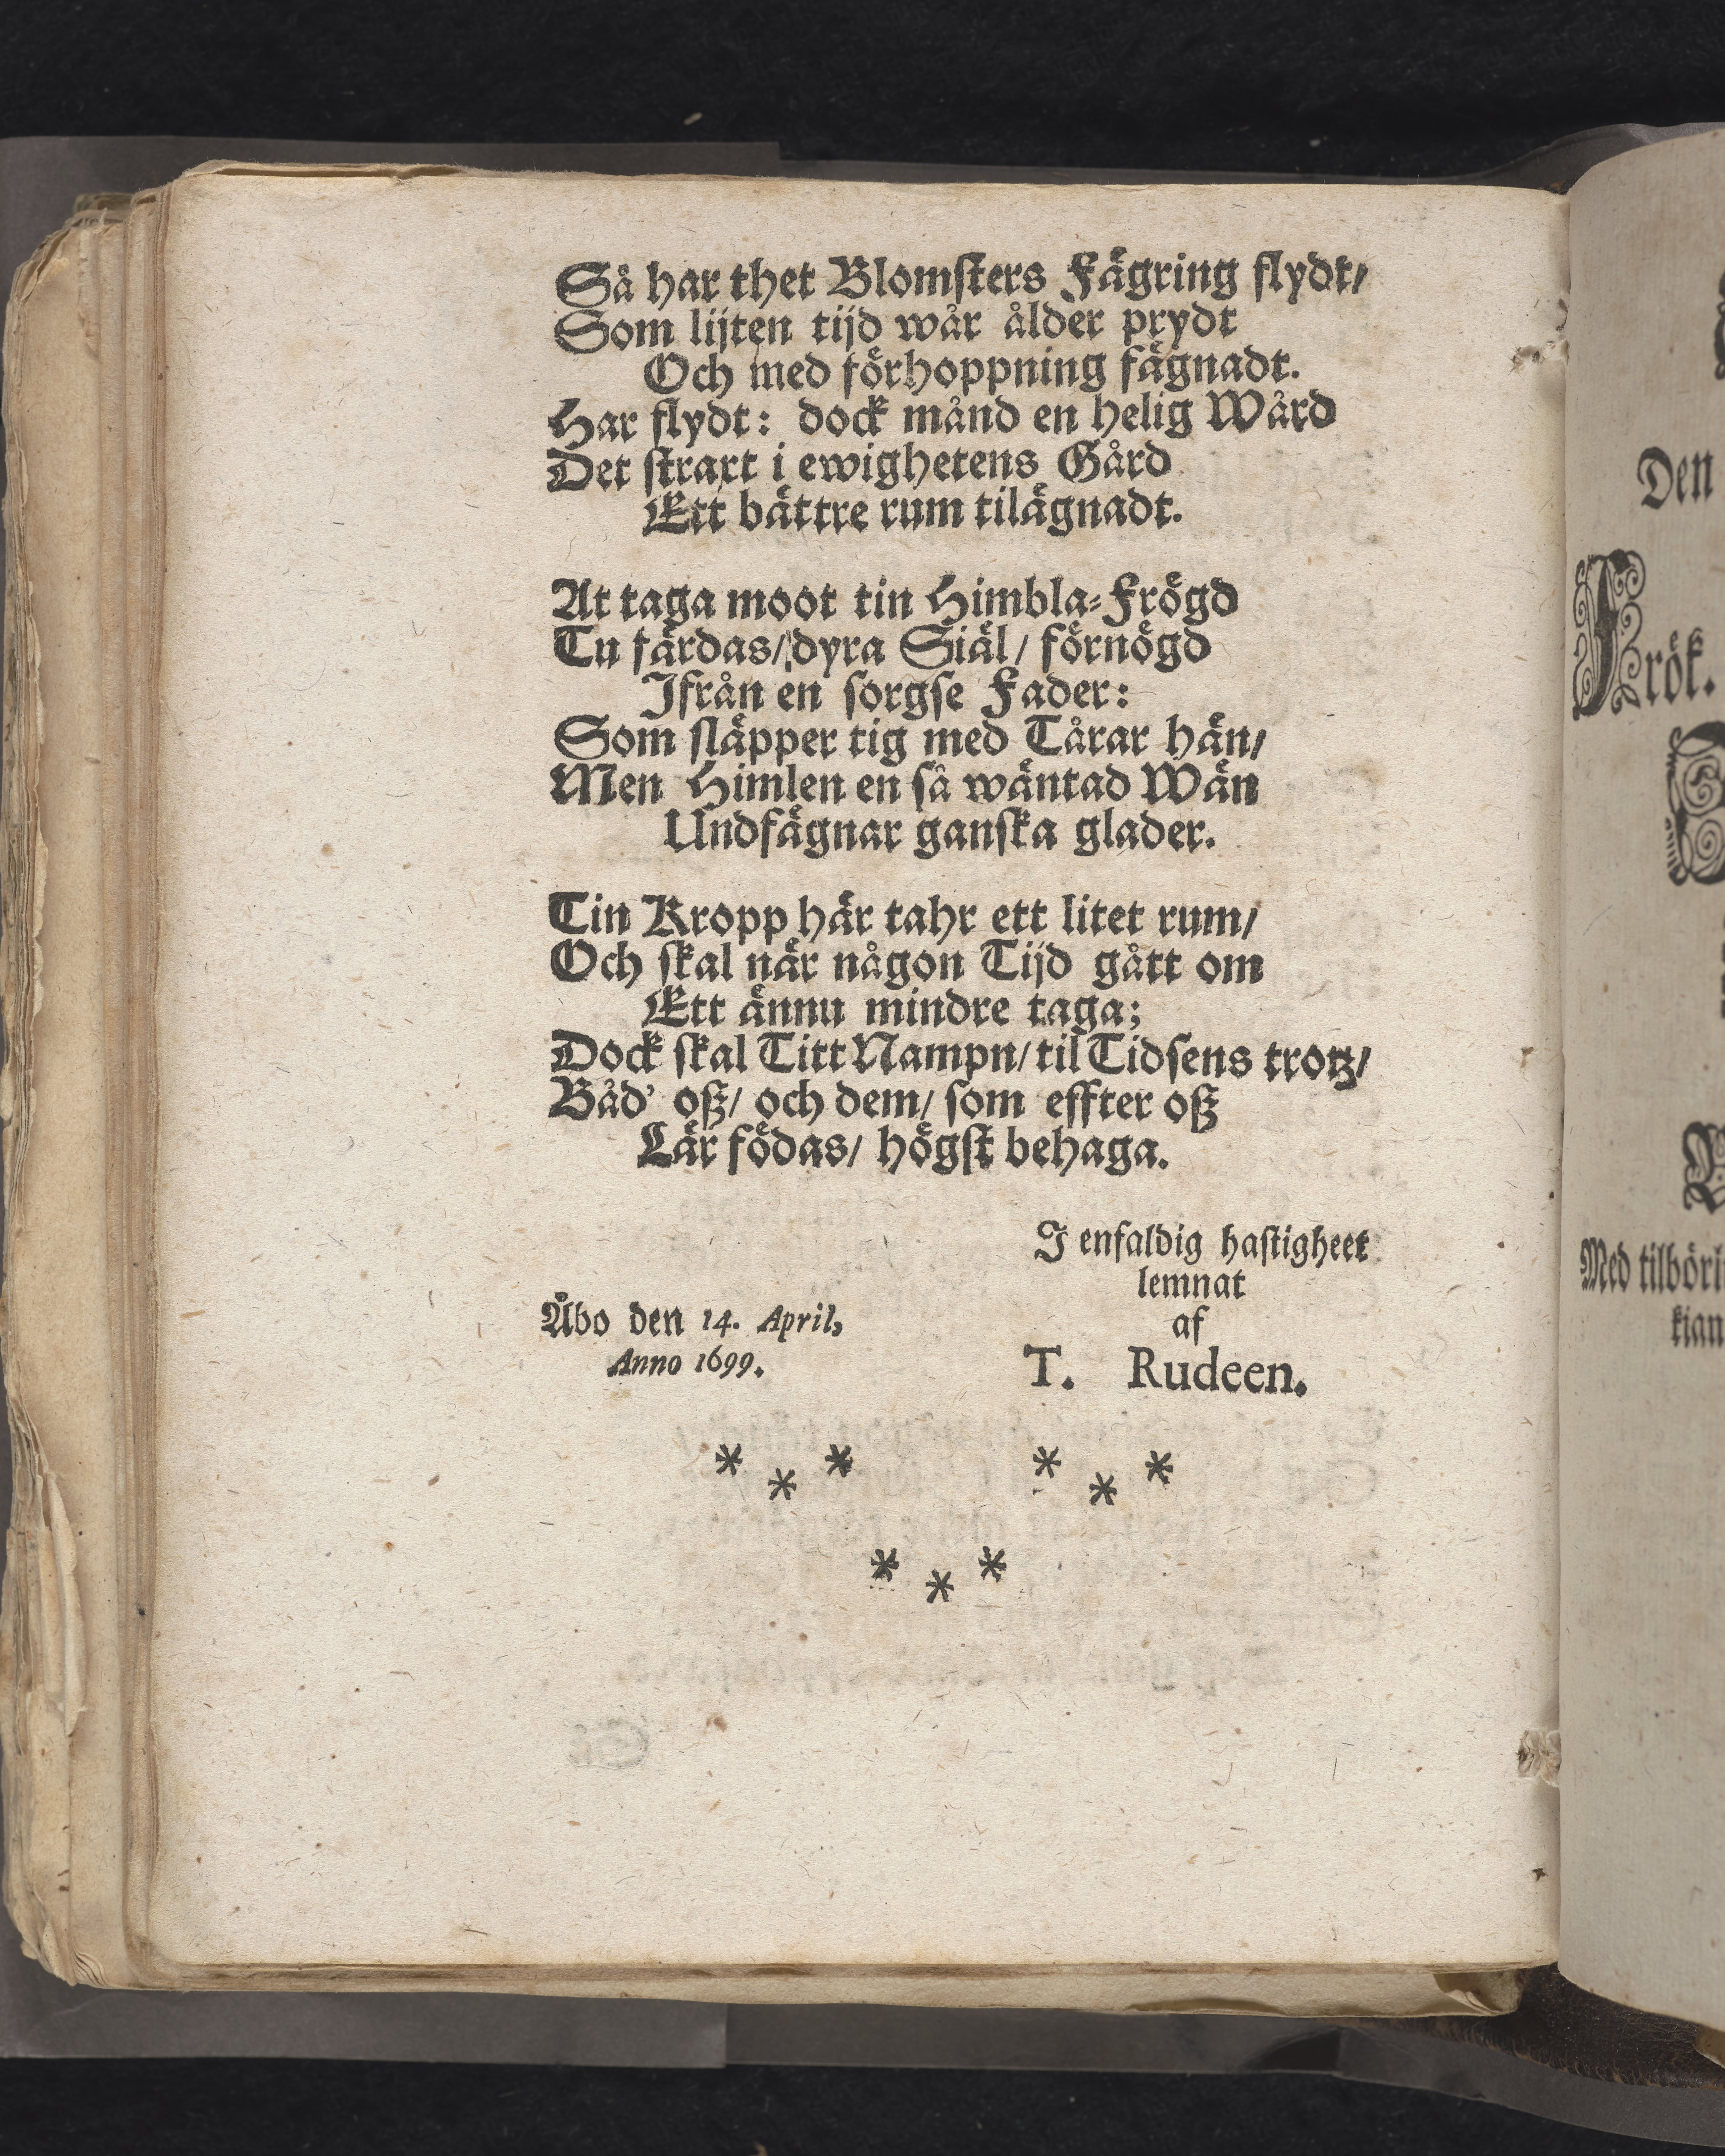 Så har thet Blomsters Fägring flydt/
Som lijten tijd wår ålder prydt
Och med förhoppning fägnadt.
Har flydt: dock månd en helig Wård
Det straxt i ewighetens Gård
Ett bättre rum tilägnadt.
At taga moot tin Himbla-Frögd
Tu färdas/ dyra Siäl/ förnögd
Ifrån en sorgse Fader:
Som släpper tig med Tårar hän/
Men Himlen en så wäntad Wän
Undfägnar ganska glader.
Tin Kropp här tahr ett litet rum/
Och skal när någon Tijd gått om
Ett ännu mindre taga;
Dock skal Titt Nampn/ til Tidsens trotz/
Båd' oß/ och dem/ som effter oß
Lär födas/ högst behaga.
I enfaldig hastigheet
lemnat
af
T. Rudeen.
Åbo den 14. April,
Anno 1699.
* * * * * *
* * *
Den
Frök.
Med